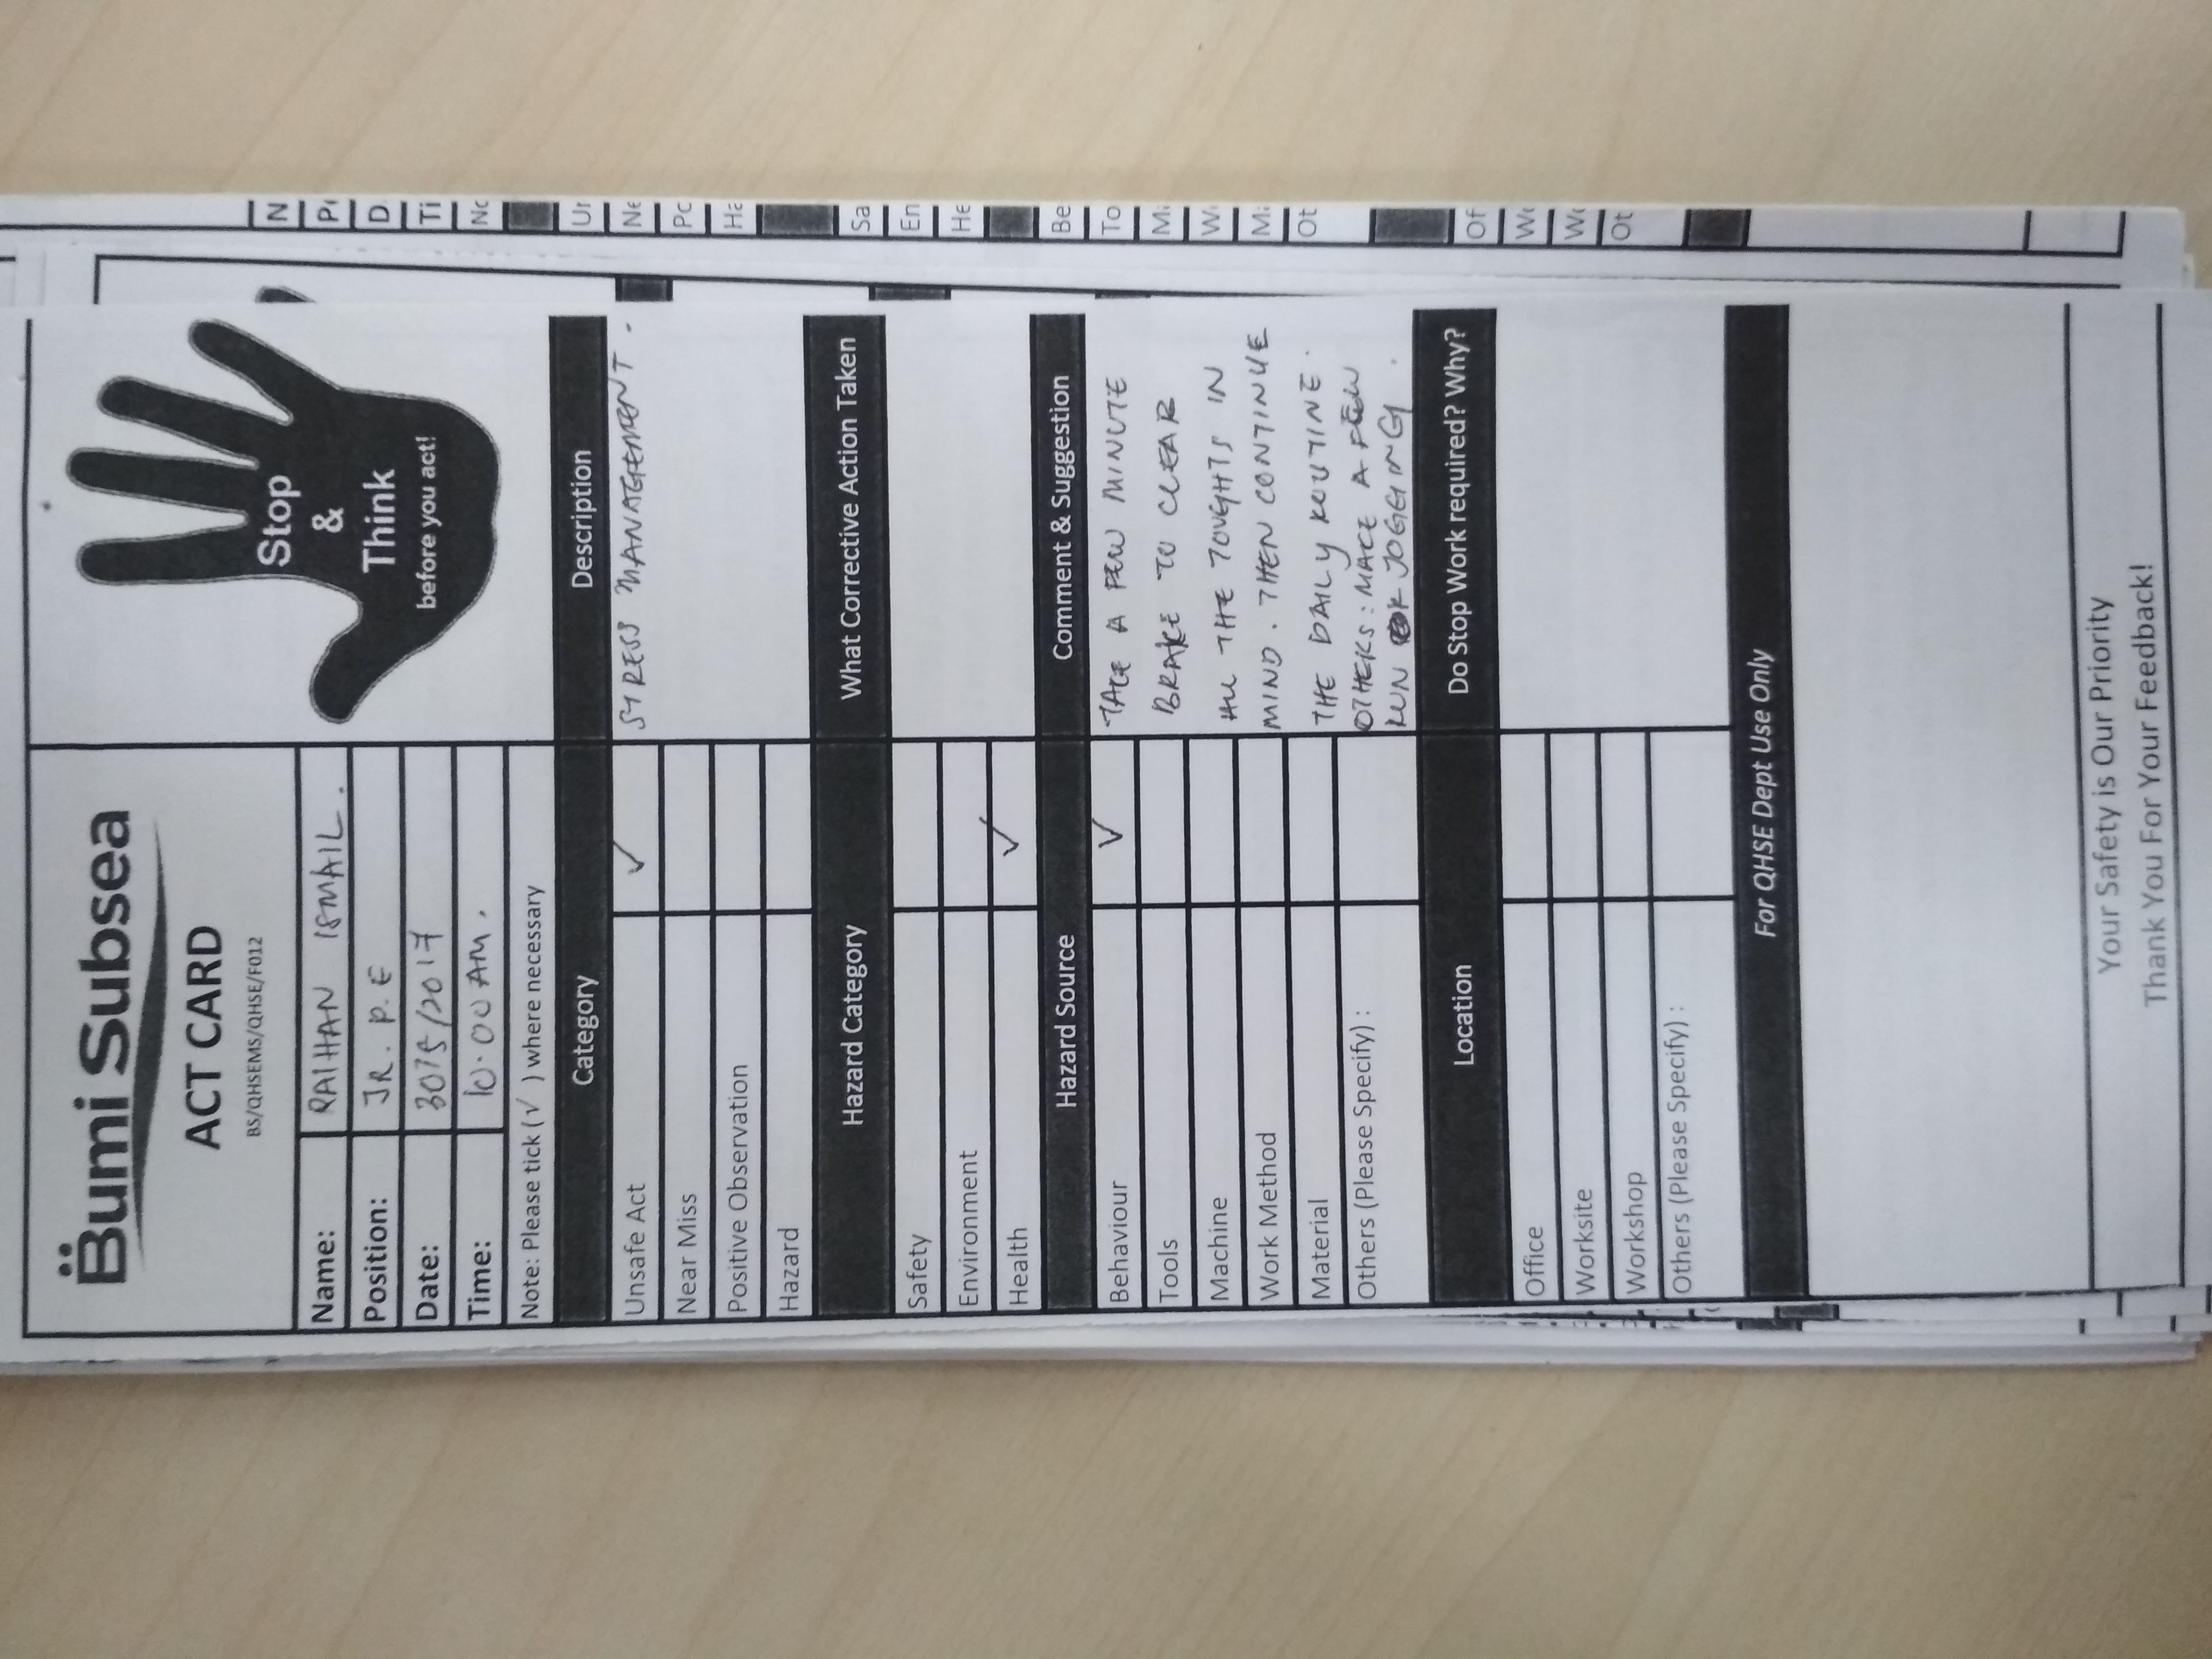 Bumi Subsea
ACT CARD
BS/QHSEMS/QHSE/F012
Stop
&
Think
before you act!
Name: RAIHAN ISMAIL.
Position: JR. P.E
Date: 30/5/2017
Time: 10.00 AM.
Note: Please tick ( √ ) where necessary
Category Description
Unsafe Act ✓ STRESS MANAGEMENT.
Near Miss
Positive Observation
Hazard
Hazard Category What Corrective Action Taken
Safety
Environment
Health ✓
Hazard Source Comment & Suggestion
Behaviour ✓ TAKE A FEW MINUTE
Tools BRAKE TO CLEAR
Machine ALL THE TOUGHTS IN
Work Method MIND. THEN CONTINUE
Material THE DAILY ROUTINE.
Others (Please Specify) : OTHERS: MAKE A FEW
RUN OR JOGGING.
Location Do Stop Work required? Why?
Office
Worksite
Workshop
Others (Please Specify) :
For QHSE Dept Use Only
Your Safety is Our Priority
Thank You For Your Feedback!
N
D
Ti
Ur
Ne
Ha
Sa
En
He
Be
To
Ot
Of
Ot